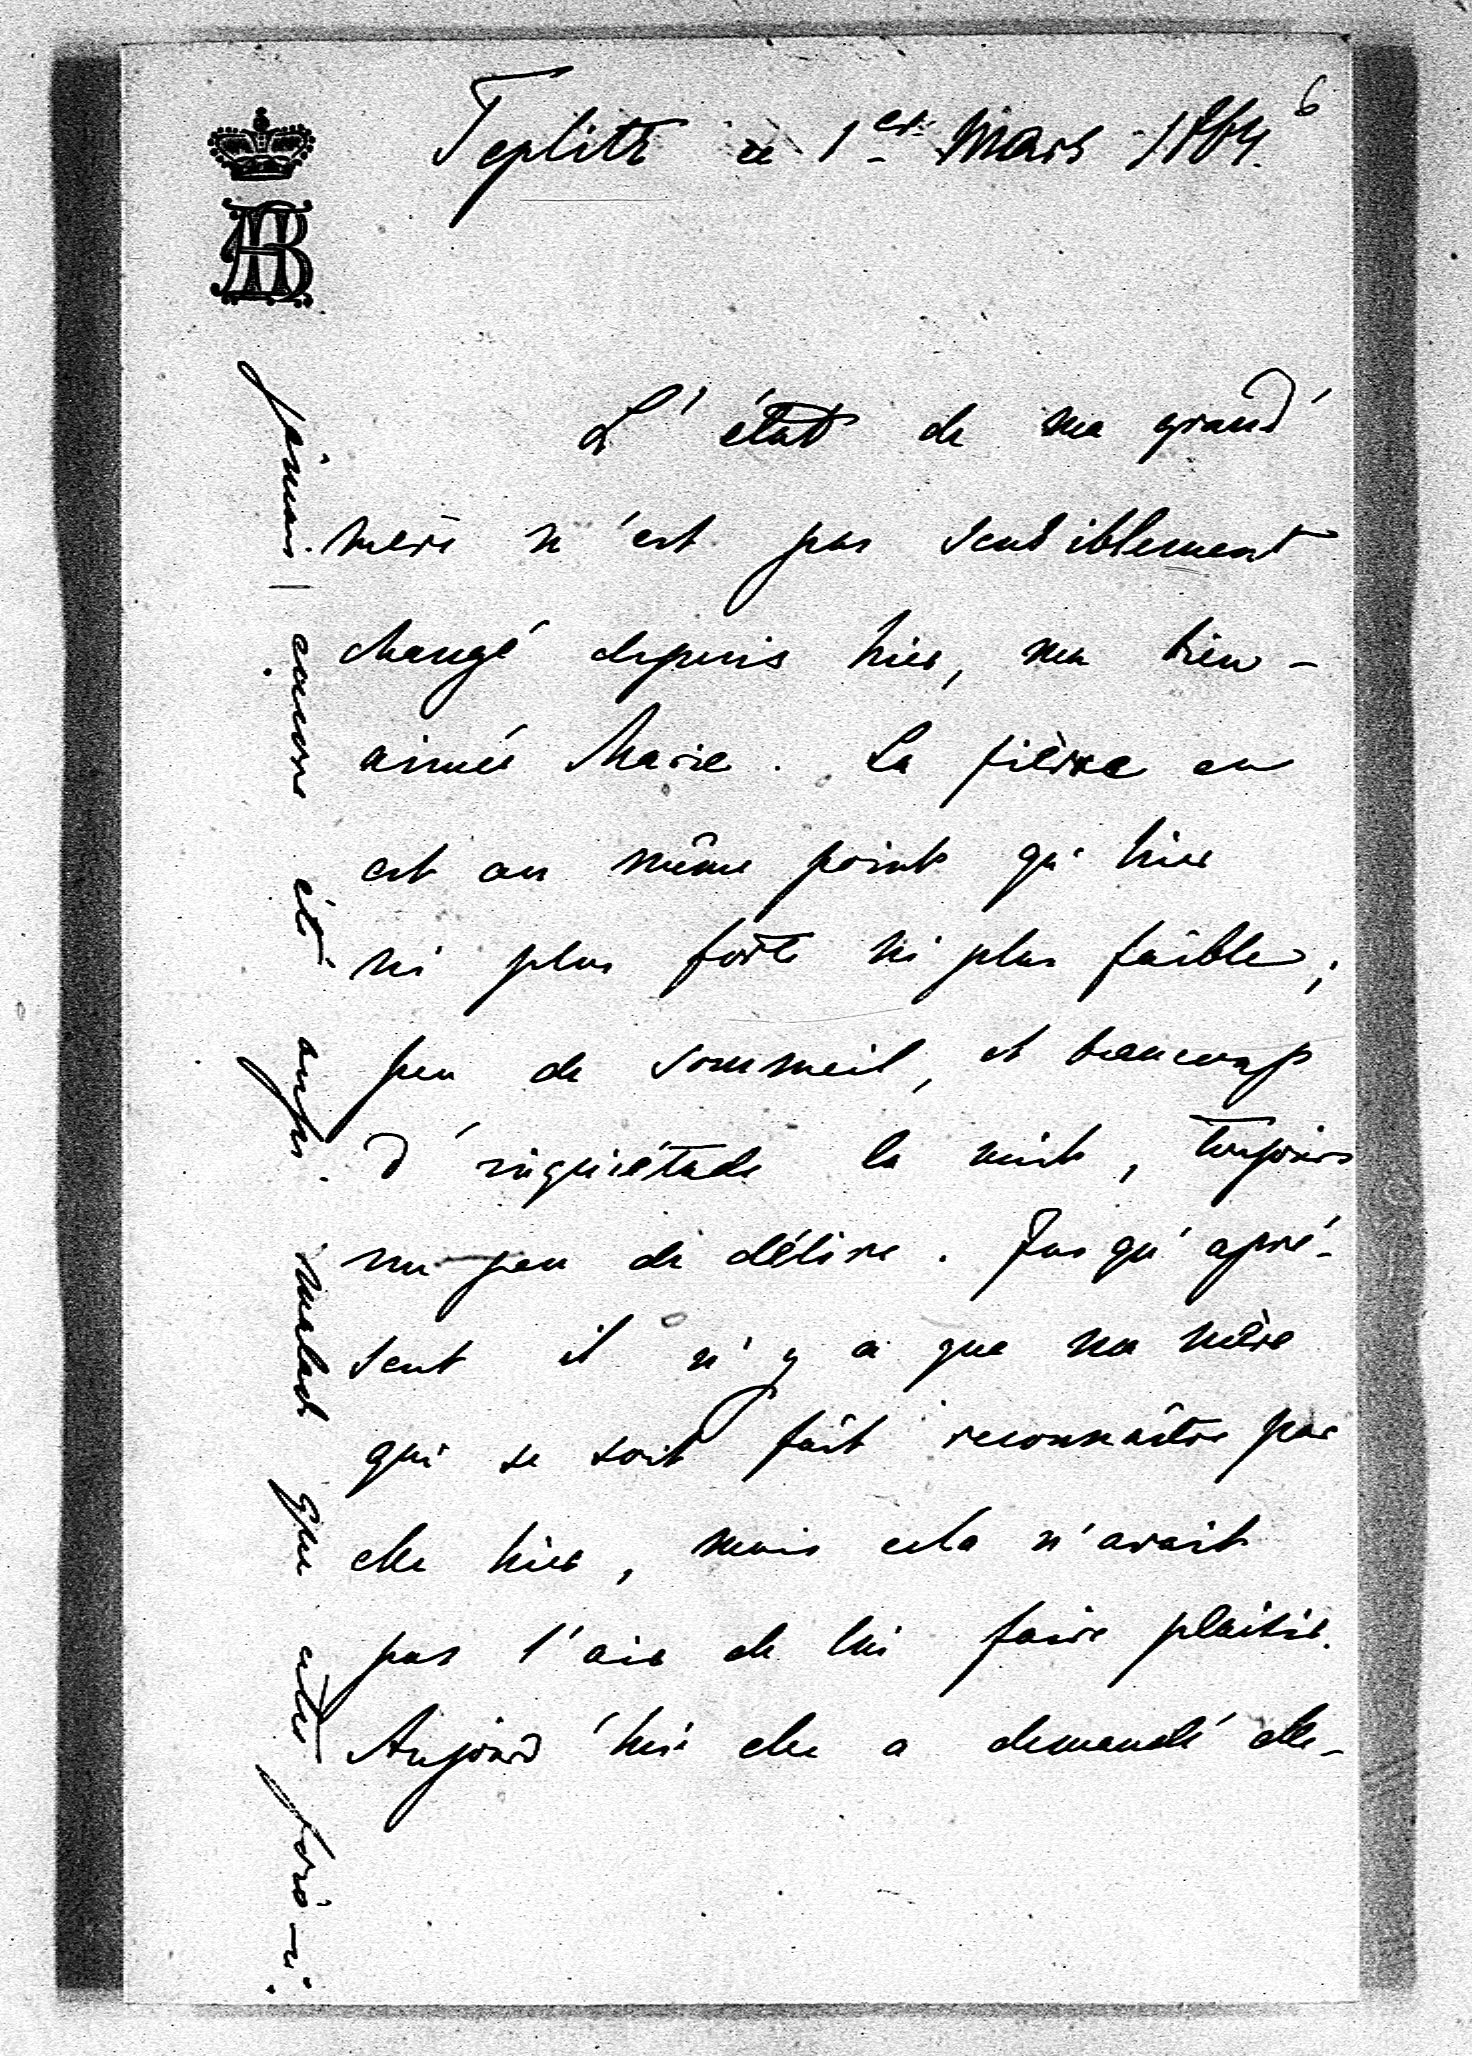 6
Teplitz ce 1er Mars 1864.
L'état de ma grand'
mère n'est pas sensiblement
changé depuis hier, ma bien-
aimée Marie. La fièvre en
est au même point qu'hier
ni plus forte ni plus faible;
peu de sommeil, et beaucoup
d'inquiétude la nuit, toujours
un peu de délire. Jusqu'apré-
sent il n'y a que ma mère
qui se soit fait reconnaître par
elle hier, mais cela n'avait
pas l'air de lui faire plaisir.
Aujourd'hui elle a demandé elle-
jamais encore été aussi malade que cette fois-ci.